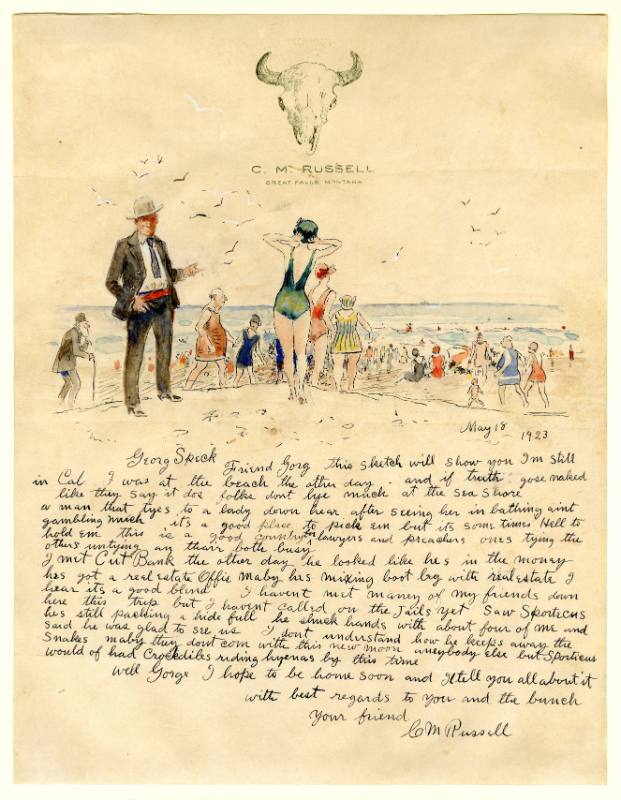 C. M. RUSSELL
GREAT FALLS, MONTANA
May 18 1923
Georg Speck
Friend Gorg this sketch will show you Im still
in Cal I was at the beach the other day - and if truth gose naked
like they say it dos folks dont lye much at the sea shore
a man that tyes to a lady down hear after seeing her in bathing aint
gambling much its a good place to pick em but its some times Hell to
hold em this is a good country for lawyers and preachers ones tying the
others untying an tharr both busy
I met Cut Bank the other day he looked like hes in the money
hes got a real estate Offis maby hes mixing boot leg with realestate I
hear its a good blend I havent met maney of my friends down
here this trip but I havent called on the Jails yet Saw Sporticus
hes still packing a hide full he shuck hands with about four of me and
said he was glad to see us I dont understand how he keeps away the
Snakes maby they dont com with this new moon aneybody else but Sporticus
would of had Crockdiles riding hyenas by this time
well Gorge I hope to be home soon and Il tell you all about it
with best regards to you and the bunch
Your friend
CM Russell